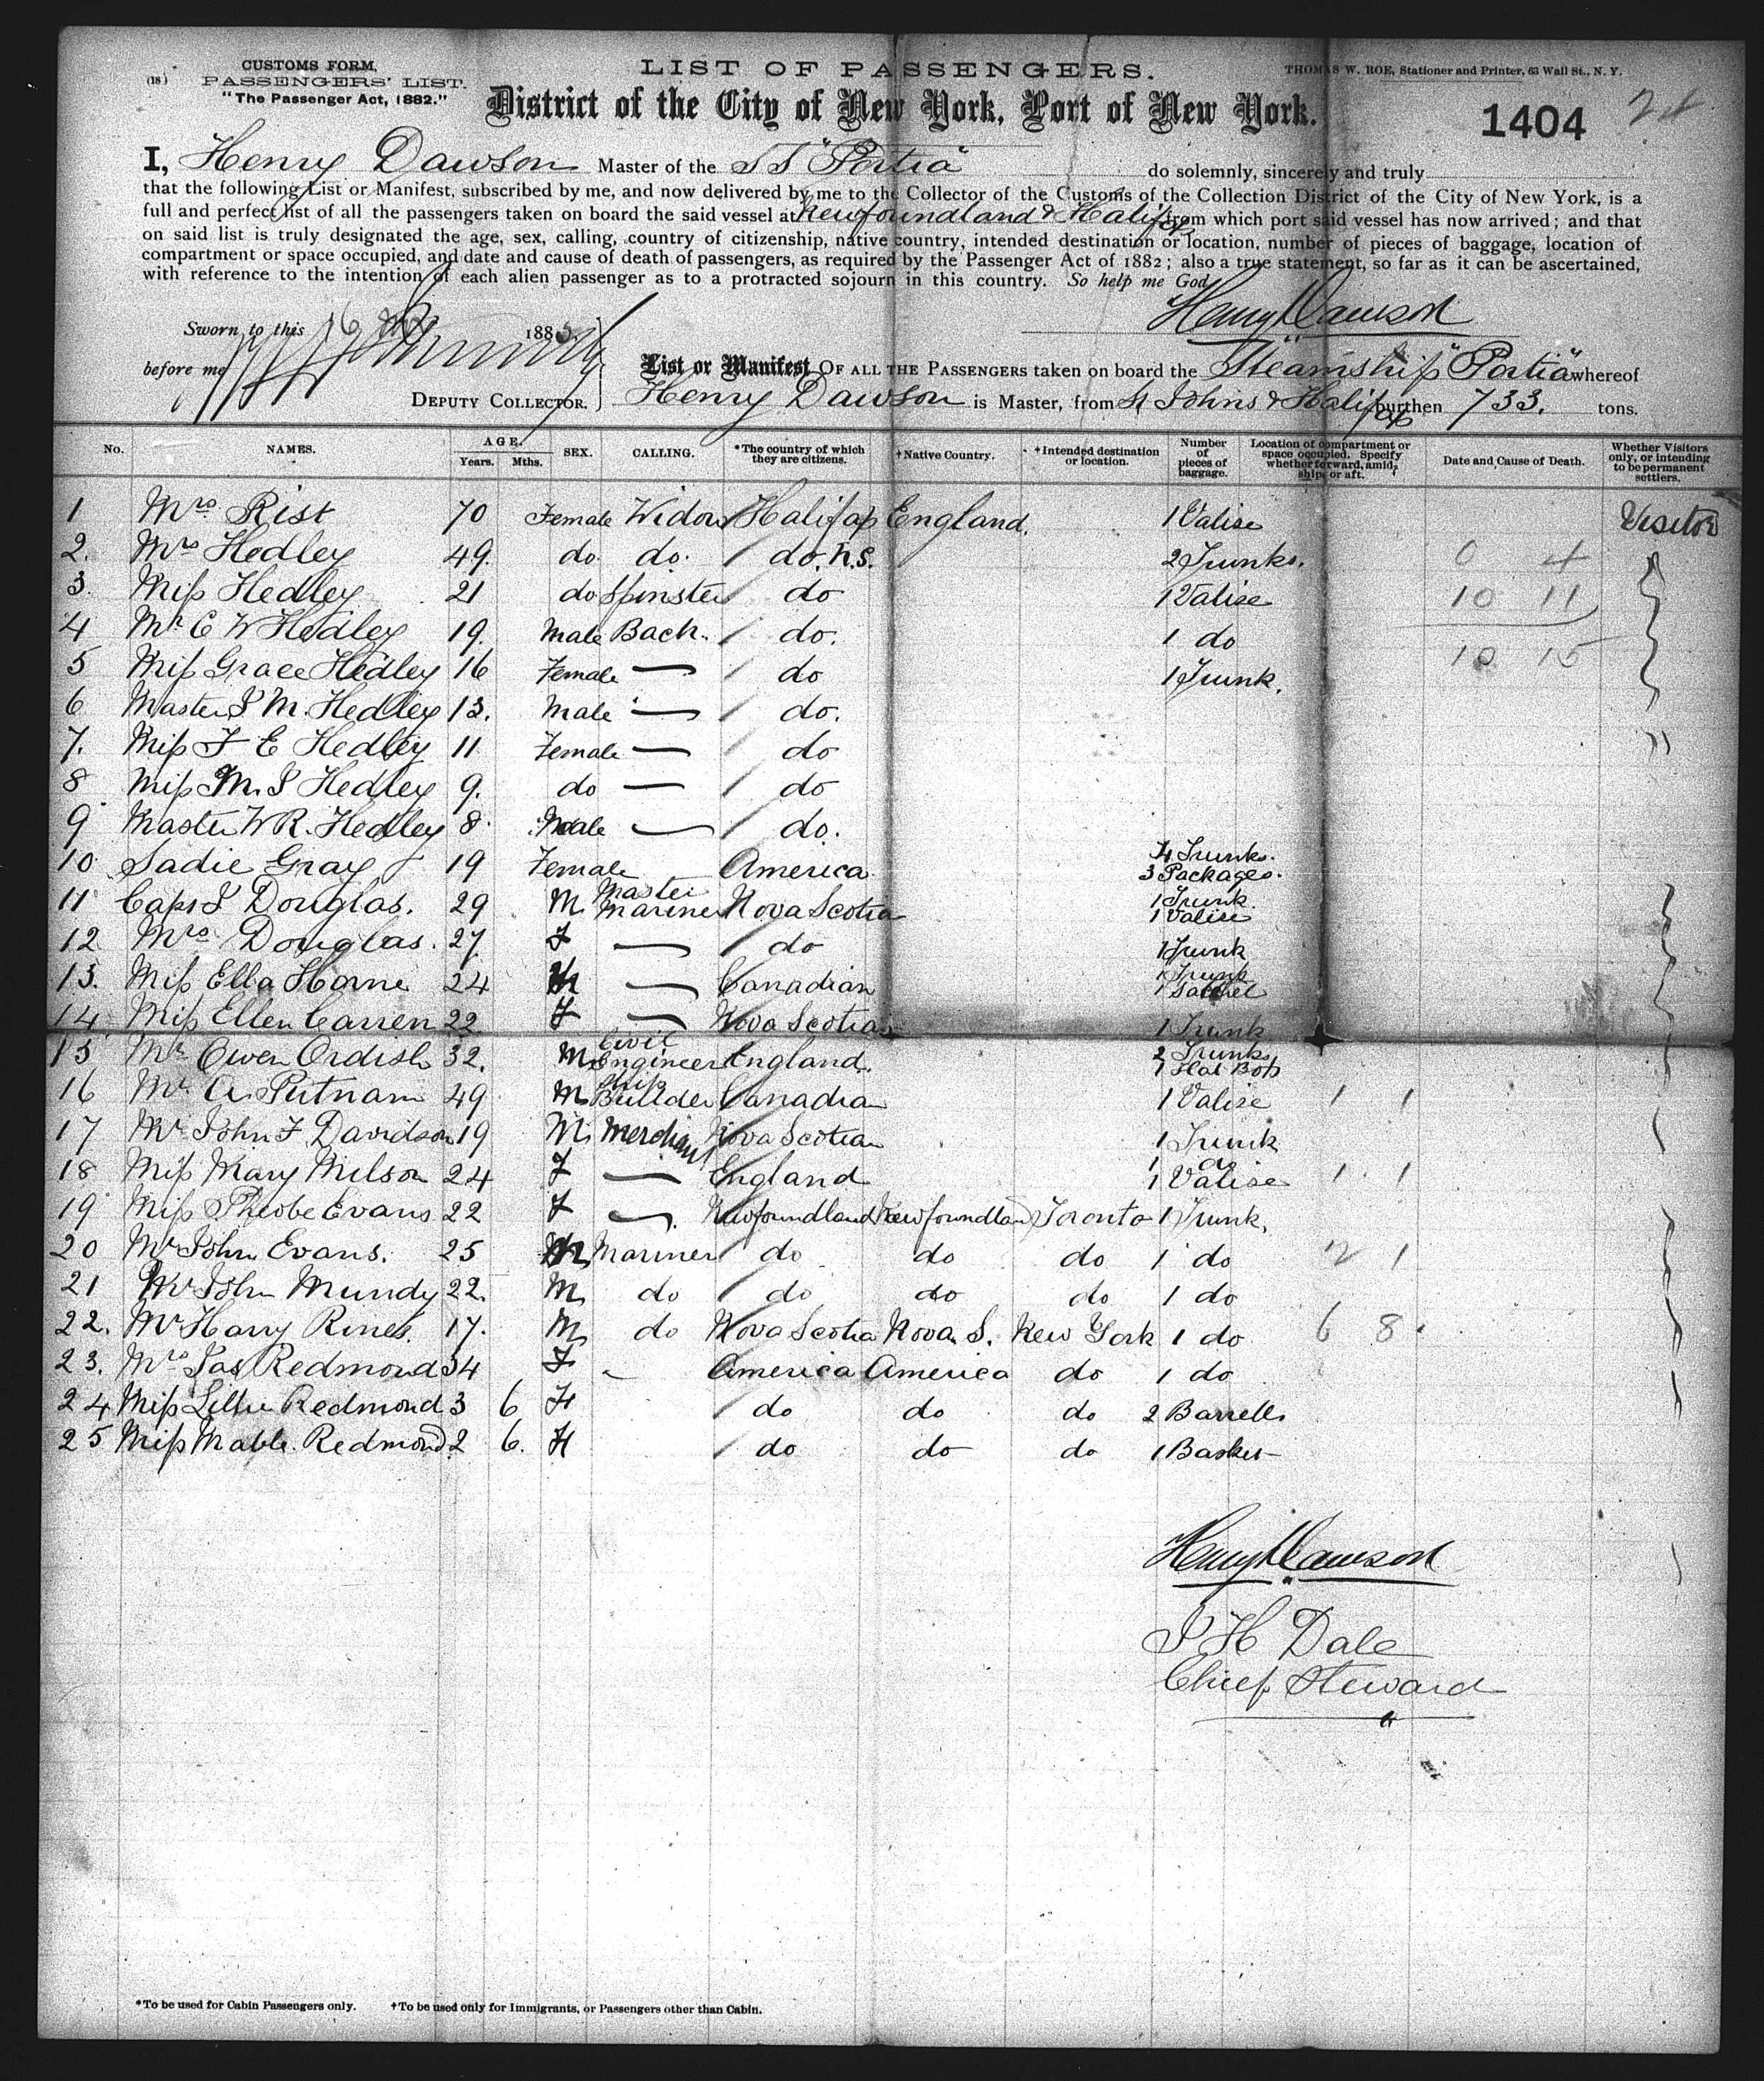 (18)
CUSTOMS FORM.
PASSENGERS' LIST.
"The Passenger Act, 1882."
LIST OF PASSENGERS.
THOMAS W. ROE, Stationer and Printer, 63 Wall St., N. Y.
District of the City of New York, Port of New York.
1404
I, Henry Dawson Master of the SS "Portia" do solemnly, sincerely and truly
that the following List or Manifest, subscribed by me, and now delivered by me to the Collector of the Customs of the Collection District of the City of New York, is a
full and perfect list of all the passengers taken on board the said vessel at Newfoundland & Halifax from which port said vessel has now arrived; and that
on said list is truly designated the age, sex, calling, country of citizenship, native country, intended destination or location, number of pieces of baggage, location of
compartment or space occupied, and date and cause of death of passengers, as required by the Passenger Act of 1882; also a true statement, so far as it can be ascertained,
with reference to the intention of each alien passenger as to a protracted sojourn in this country. So help me God
Henry Dawson
Sworn to this 16 1885
before me
DEPUTY COLLECTOR.
List or Manifest OF ALL THE PASSENGERS taken on board the Steamship "Portia" whereof
Henry Dawson is Master, from St Johns & Halifax burthen 733. tons.
No. NAMES. AGE. Years. Mths. SEX. CALLING. *The country of which they are citizens. †Native Country. †Intended destination or location. Number of pieces of baggage. Location of compartment or space occupied. Specify whether forward, amidships or aft. Date and Cause of Death. Whether Visitors only, or intending to be permanent settlers.
1 Mrs Rist 70 Female Widow Halifax England. 1 Valise Visitor
2. Mrs Hedley 49. do do. do. N.S. 2 Trunks. 0 4
3. Miss Hedley 21 do Spinster do 1 Valise 10 11
4 Mr E W Hedley 19. Male Bach. do. 1 do
5 Miss Grace Hedley 16 Female — do 1 Trunk. 10 15
6 Master J M. Hedley 13. Male — do.
7. Miss F E Hedley 11 Female — do "
8 Miss M. J Hedley 9. do — do
9 Master W R. Hedley 8. Male — do.
10 Sadie Gray 19 Female America 4 Trunks. 3 Packages.
11 Capt J Douglas. 29 M Master Mariner Nova Scotia 1 Trunk. 1 Valise
12 Mrs Douglas. 27 F — do 1 Trunk
13. Miss Ella Horne 24 — Canadian 1 Trunk 1 Satchel
14 Miss Ellen Carren 22 F — Nova Scotia 1 Trunk
15 Mr Owen Ordish 32. M Civil Engineer England. 2 Trunks 1 Hat Box
16 Mr A. Putnam 49 M Ship Builder Canadian 1 Valise 1 1
17 Mr John F Davidson 19 M Merchant Nova Scotian 1 Trunk
18 Miss Mary Milson 24 F — England 1 do 1 Valise 1 1
19 Miss Pheobe Evans 22 F — Newfoundland Newfoundland Toronto 1 Trunk.
20 Mr John Evans. 25 M Mariner do do do 1 do 2 1
21 Mr John Mundy 22. M do do do do 1 do
22. Mr Harry Rines. 17. M do Nova Scotia Nova S. New York 1 do 6 8
23. Mrs Jas Redmond 34 F - America America do 1 do
24 Miss Lillie Redmond 3 6 F do do do 2 Barrells
25 Miss Mable Redmond 2 6. F do do do 1 Basket
Henry Dawson
J H Dale
Chief Steward
*To be used for Cabin Passengers only. †To be used only for Immigrants, or Passengers other than Cabin.